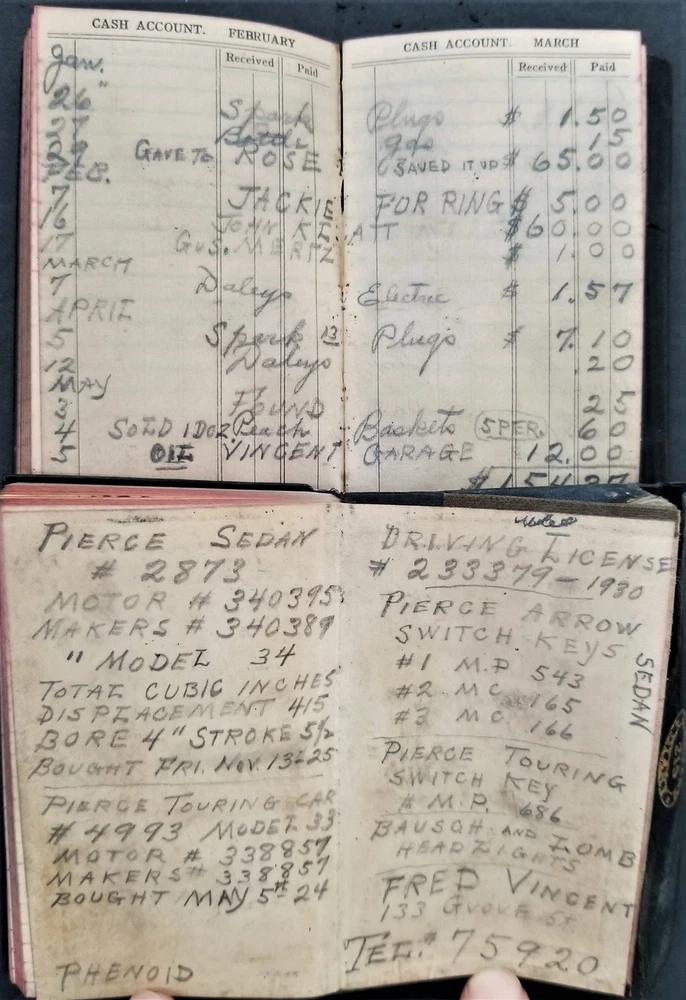 CASH ACCOUNT. FEBRUARY
Received Paid
CASH ACCOUNT. MARCH
Received Paid
Jan.
26 " Spark Plugs $ 1.50
27 gas 15
29 GAVE TO ROSE (SAVED IT UP $ 65.00
FEB.
7 JACKIE FOR RING $ 5.00
16 JOHN $60.00
17 GUS. MERTZ $ 1.00
MARCH
7 Daleys Electric $ 1.57
APRIL
5 Spark 13 Plugs $ 7.10
12 Daleys .20
MAY
3 FOUND 25
4 SOLD 1 DOZ Peach Baskets (5 PER.) 60
5 OIL VINCENT GARAGE 12.00
$154.37
PIERCE SEDAN
# 2873
MOTOR # 340395
MAKERS # 340389
" MODEL 34
TOTAL CUBIC INCHES
DISPLACEMENT 415
BORE 4" STROKE 5 1/2
BOUGHT FRI. NOV. 13-25
PIERCE TOURING CAR
# 4993 MODEL 33
MOTOR # 338857
MAKERS # 338857
BOUGHT MAY 5th-24
PHENOID
DRIVING LICENSE
# 233379-1930
PIERCE ARROW
SWITCH KEYS
SEDAN
#1 M.P 543
#2 MC 165
#3 MC 166
PIERCE TOURING
SWITCH KEY
# M.P. 686
BAUSCH AND LOMB
HEADLIGHTS
FRED VINCENT
133 Grove St
TEL.# 75920